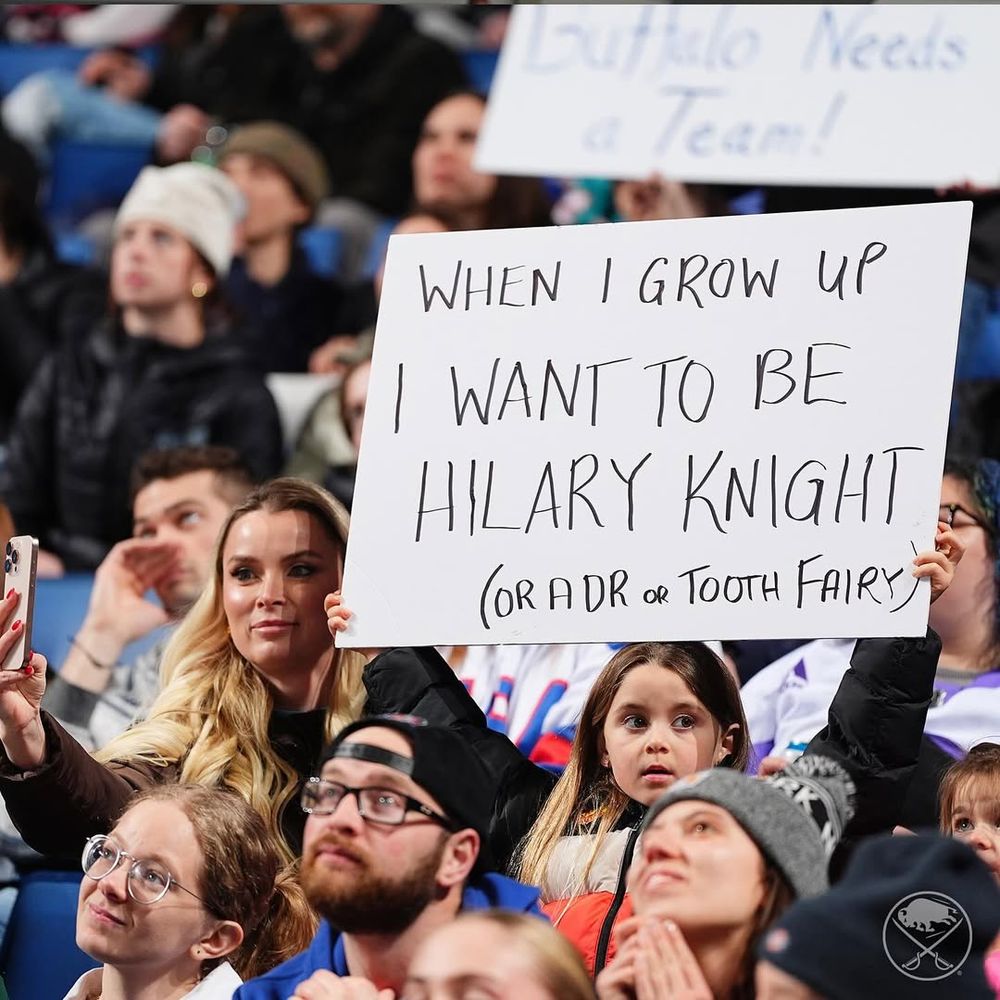 Buffalo Needs
a Team!
WHEN I GROW UP
I WANT TO BE
HILARY KNIGHT
(OR A DR OR TOOTH FAIRY)